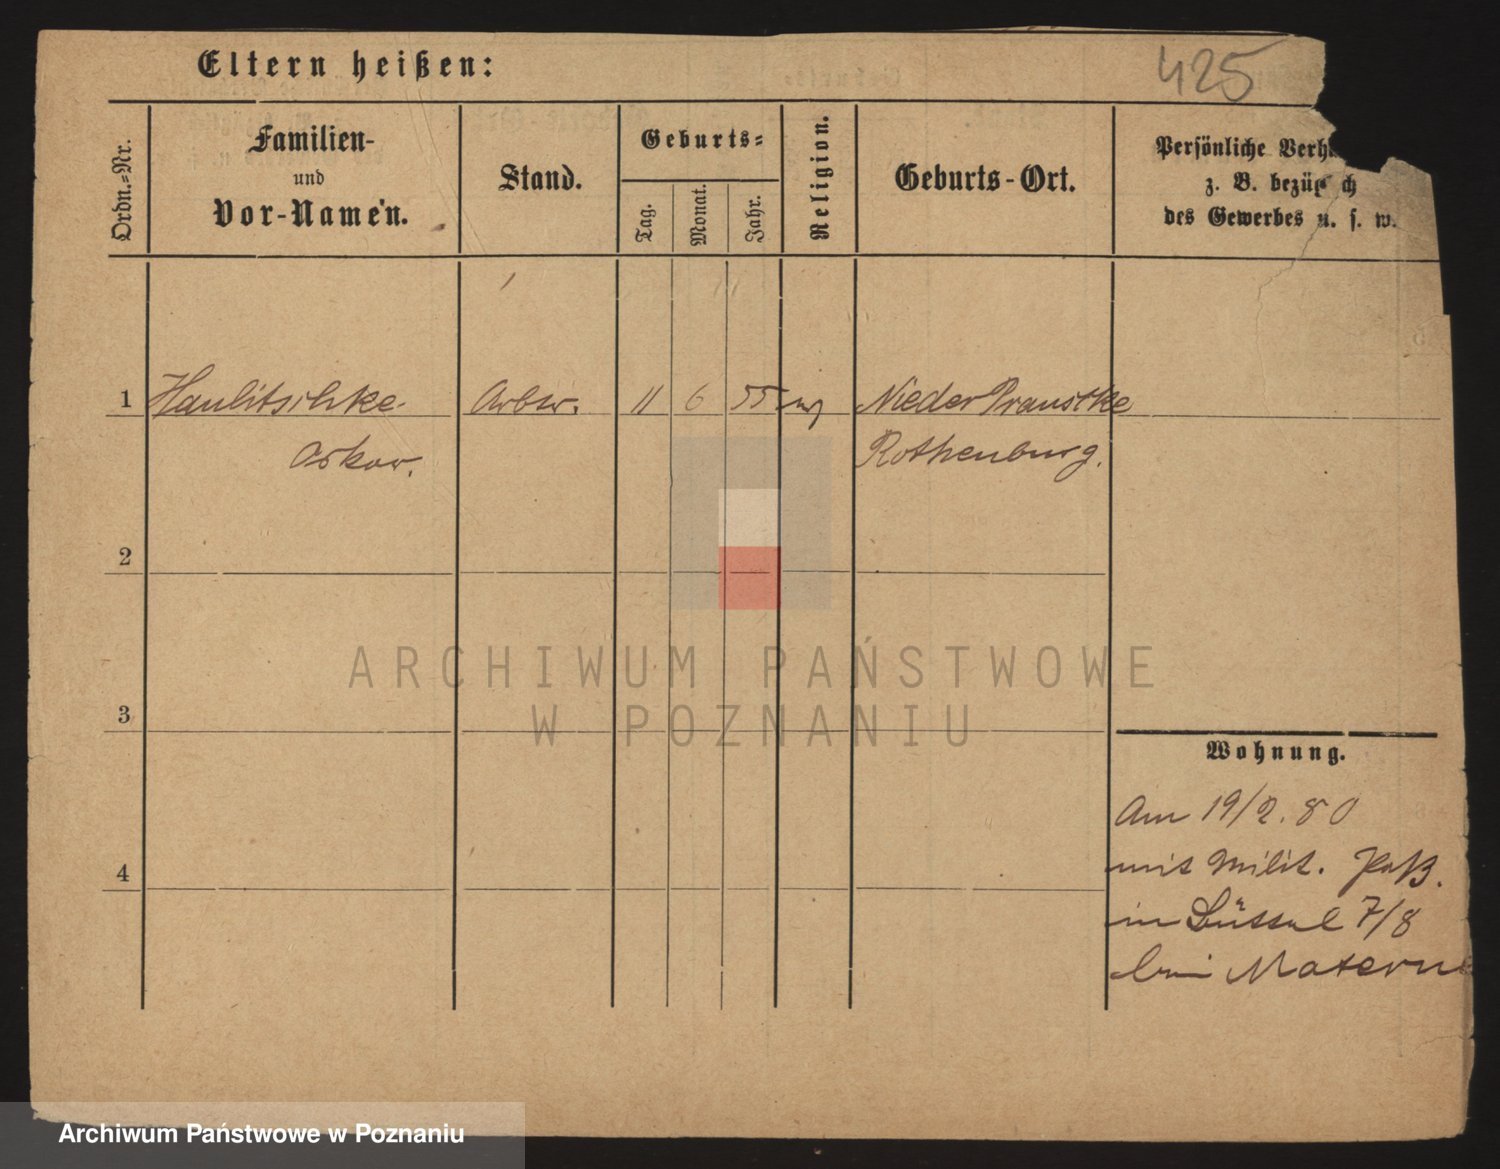 Eltern heißen:
425
Ordn.-Nr.
Familien-
und
Vor-Namen.
Stand.
Geburts-
Tag.
Monat.
Jahr.
Religion.
Geburts-Ort.
Persönliche Verh
z. B. bezüg ch
des Gewerbes u. s. w.
1 Haulitschke Arbtr. 11 6 55 Nieder Prauske
Oskar. Rothenburg.
2
3
4
Wohnung.
Am 19/2. 80
mit Milit. Paß.
in 7/8
bei Materne
ARCHIWUM PAŃSTWOWE
W POZNANIU
Archiwum Państwowe w Poznaniu